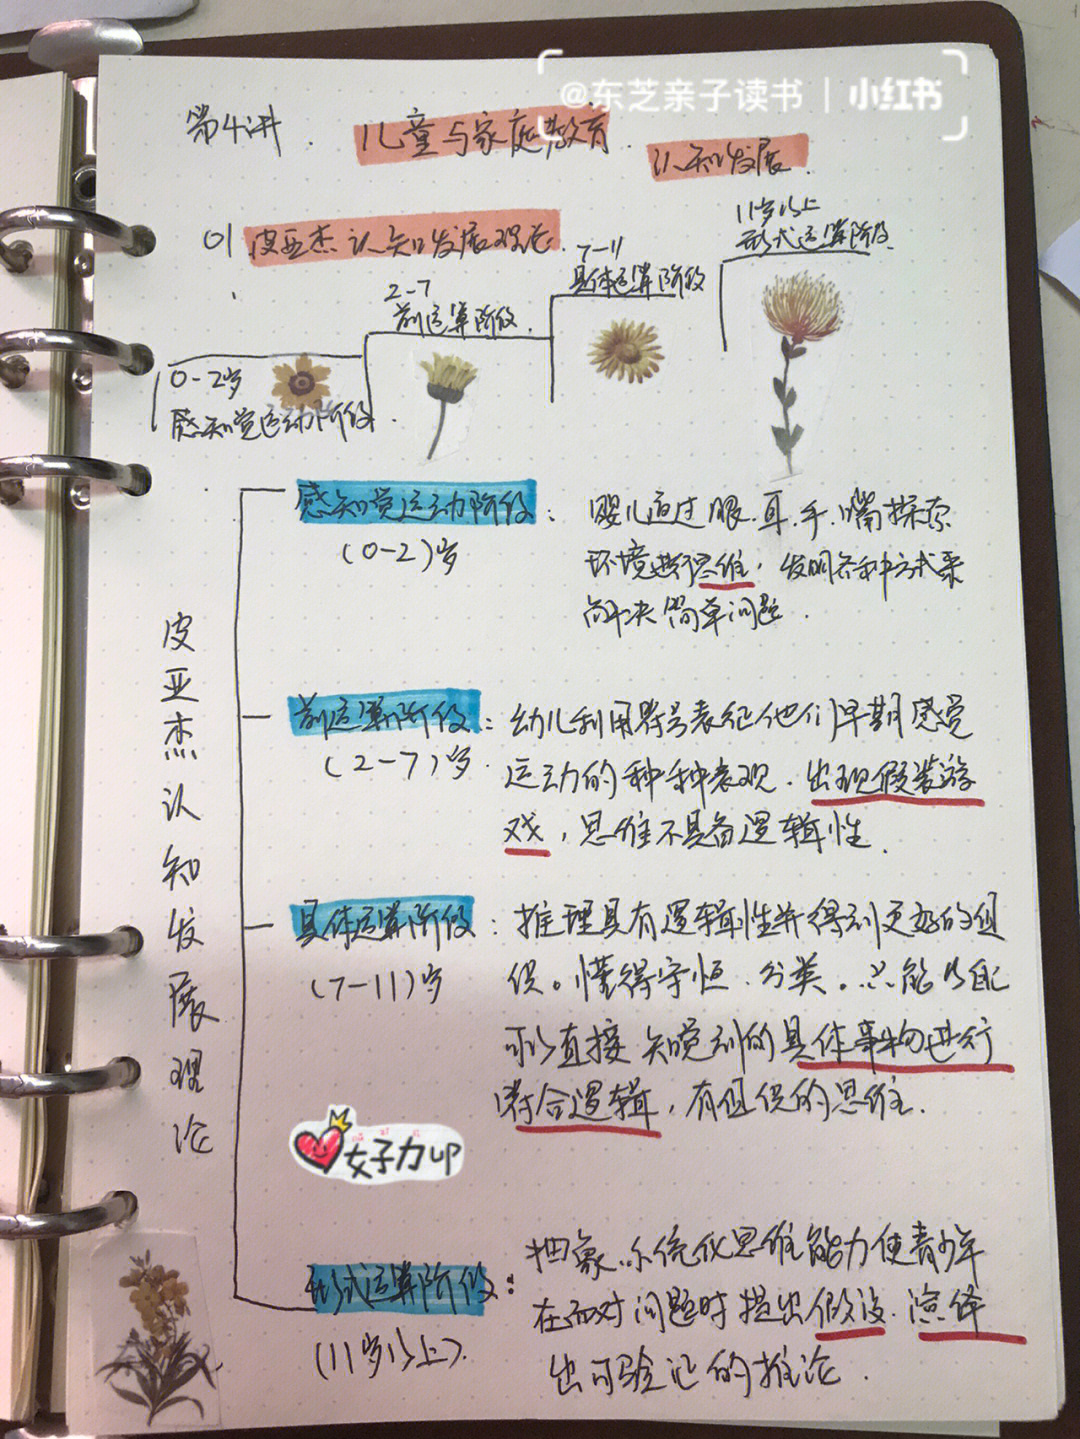 @东芝亲子读书 | 小红书
第4讲. 儿童与家庭教育.
认知发展.
01 皮亚杰认知发展理论.
11岁以上
形式运算阶段
7-11
具体运算阶段
2-7
前运算阶段.
0-2岁
感知觉运动阶段.
皮亚杰认知发展理论
感知觉运动阶段:
(0-2)岁
婴儿通过眼.耳.手.嘴探索
环境进行思维,发明各种方式来
解决简单问题.
前运算阶段:
(2-7)岁.
幼儿利用符号表征他们早期感觉
运动的种种表观.出现假装游
戏,思维不具备逻辑性.
具体运算阶段:
(7-11)岁
推理具有逻辑性并得到更好的组
织。懂得守恒.分类。只能对
可以直接知觉到的具体事物进行
符合逻辑,有组织的思维.
女子力up
形式运算阶段:
(11岁以上).
抽象.系统化思维能力使青少年
在面对问题时提出假设.演绎
出可验证的推论.